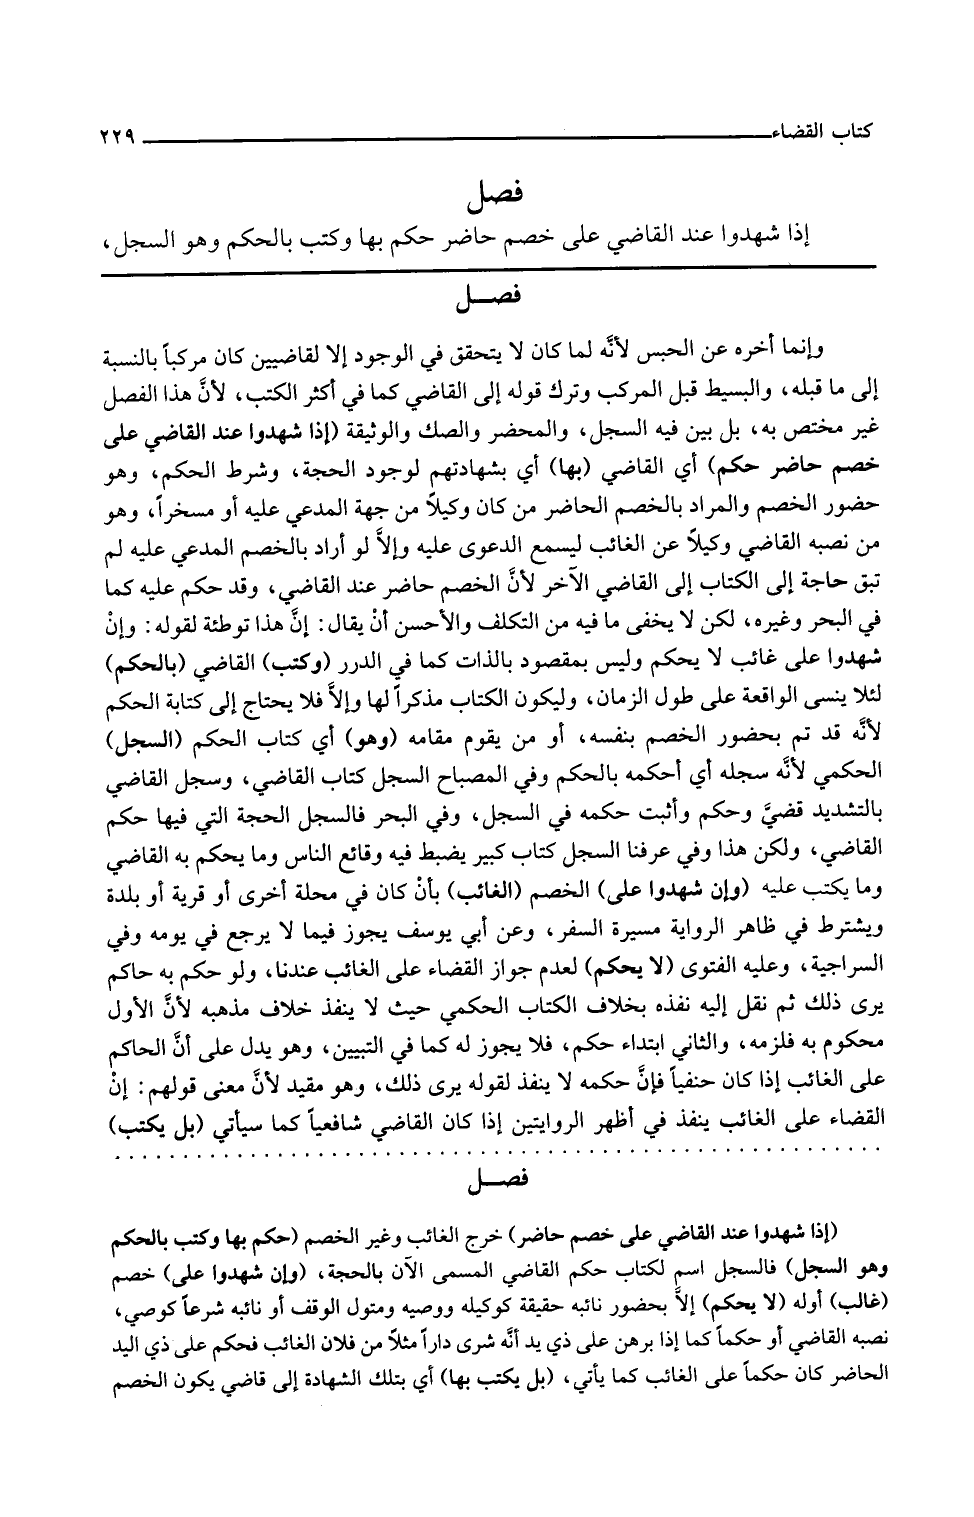 كتاب القضاء ٢٢٩
فصل
إذا شهدوا عند القاضي على خصم حاضر حكم بها وكتب بالحكم وهو السجل،
فصــل
وإنما أخره عن الحبس لأنَّه لما كان لا يتحقق في الوجود إلا لقاضيين كان مركباً بالنسبة
إلى ما قبله، والبسيط قبل المركب وترك قوله إلى القاضي كما في أكثر الكتب، لأنَّ هذا الفصل
غير مختص به، بل بين فيه السجل، والمحضر والصك والوثيقة (إذا شهدوا عند القاضي على
خصم حاضر حكم) أي القاضي (بها) أي بشهادتهم لوجود الحجة، وشرط الحكم، وهو
حضور الخصم والمراد بالخصم الحاضر من كان وكيلاً من جهة المدعي عليه أو مسخراً، وهو
من نصبه القاضي وكيلاً عن الغائب ليسمع الدعوى عليه وإلاَّ لو أراد بالخصم المدعي عليه لم
تبق حاجة إلى الكتاب إلى القاضي الآخر لأنَّ الخصم حاضر عند القاضي، وقد حكم عليه كما
في البحر وغيره، لكن لا يخفى ما فيه من التكلف والأحسن أنْ يقال: إنَّ هذا توطئة لقوله: وإنْ
شهدوا على غائب لا يحكم وليس بمقصود بالذات كما في الدرر (وكتب) القاضي (بالحكم)
لئلا ينسى الواقعة على طول الزمان، وليكون الكتاب مذكراً لها وإلاَّ فلا يحتاج إلى كتابة الحكم
لأنَّه قد تم بحضور الخصم بنفسه، أو من يقوم مقامه (وهو) أي كتاب الحكم (السجل)
الحكمي لأنَّه سجله أي أحكمه بالحكم وفي المصباح السجل كتاب القاضي، وسجل القاضي
بالتشديد قضيَّ وحكم وأثبت حكمه في السجل، وفي البحر فالسجل الحجة التي فيها حكم
القاضي، ولكن هذا وفي عرفنا السجل كتاب كبير يضبط فيه وقائع الناس وما يحكم به القاضي
وما يكتب عليه (وإن شهدوا على) الخصم (الغائب) بأنْ كان في محلة أخرى أو قرية أو بلدة
ويشترط في ظاهر الرواية مسيرة السفر، وعن أبي يوسف يجوز فيما لا يرجع في يومه وفي
السراجية، وعليه الفتوى (لا يحكم) لعدم جواز القضاء على الغائب عندنا، ولو حكم به حاكم
يرى ذلك ثم نقل إليه نفذه بخلاف الكتاب الحكمي حيث لا ينفذ خلاف مذهبه لأنَّ الأول
محكوم به فلزمه، والثاني ابتداء حكم، فلا يجوز له كما في التبيين، وهو يدل على أنَّ الحاكم
على الغائب إذا كان حنفياً فإنَّ حكمه لا ينفذ لقوله يرى ذلك، وهو مقيد لأنَّ معنى قولهم: إنْ
القضاء على الغائب ينفذ في أظهر الروايتين إذا كان القاضي شافعياً كما سيأتي (بل يكتب)
فصــل
(إذا شهدوا عند القاضي على خصم حاضر) خرج الغائب وغير الخصم (حكم بها وكتب بالحكم
وهو السجل) فالسجل اسم لكتاب حكم القاضي المسمى الآن بالحجة، (وإن شهدوا على) خصم
(غالب) أوله (لا يحكم) إلاَّ بحضور نائبه حقيقة كوكيله ووصيه ومتول الوقف أو نائبه شرعاً كوصي،
نصبه القاضي أو حكماً كما إذا برهن على ذي يد أنَّه شرى داراً مثلاً من فلان الغائب فحكم على ذي اليد
الحاضر كان حكماً على الغائب كما يأتي، (بل يكتب بها) أي بتلك الشهادة إلى قاضي يكون الخصم